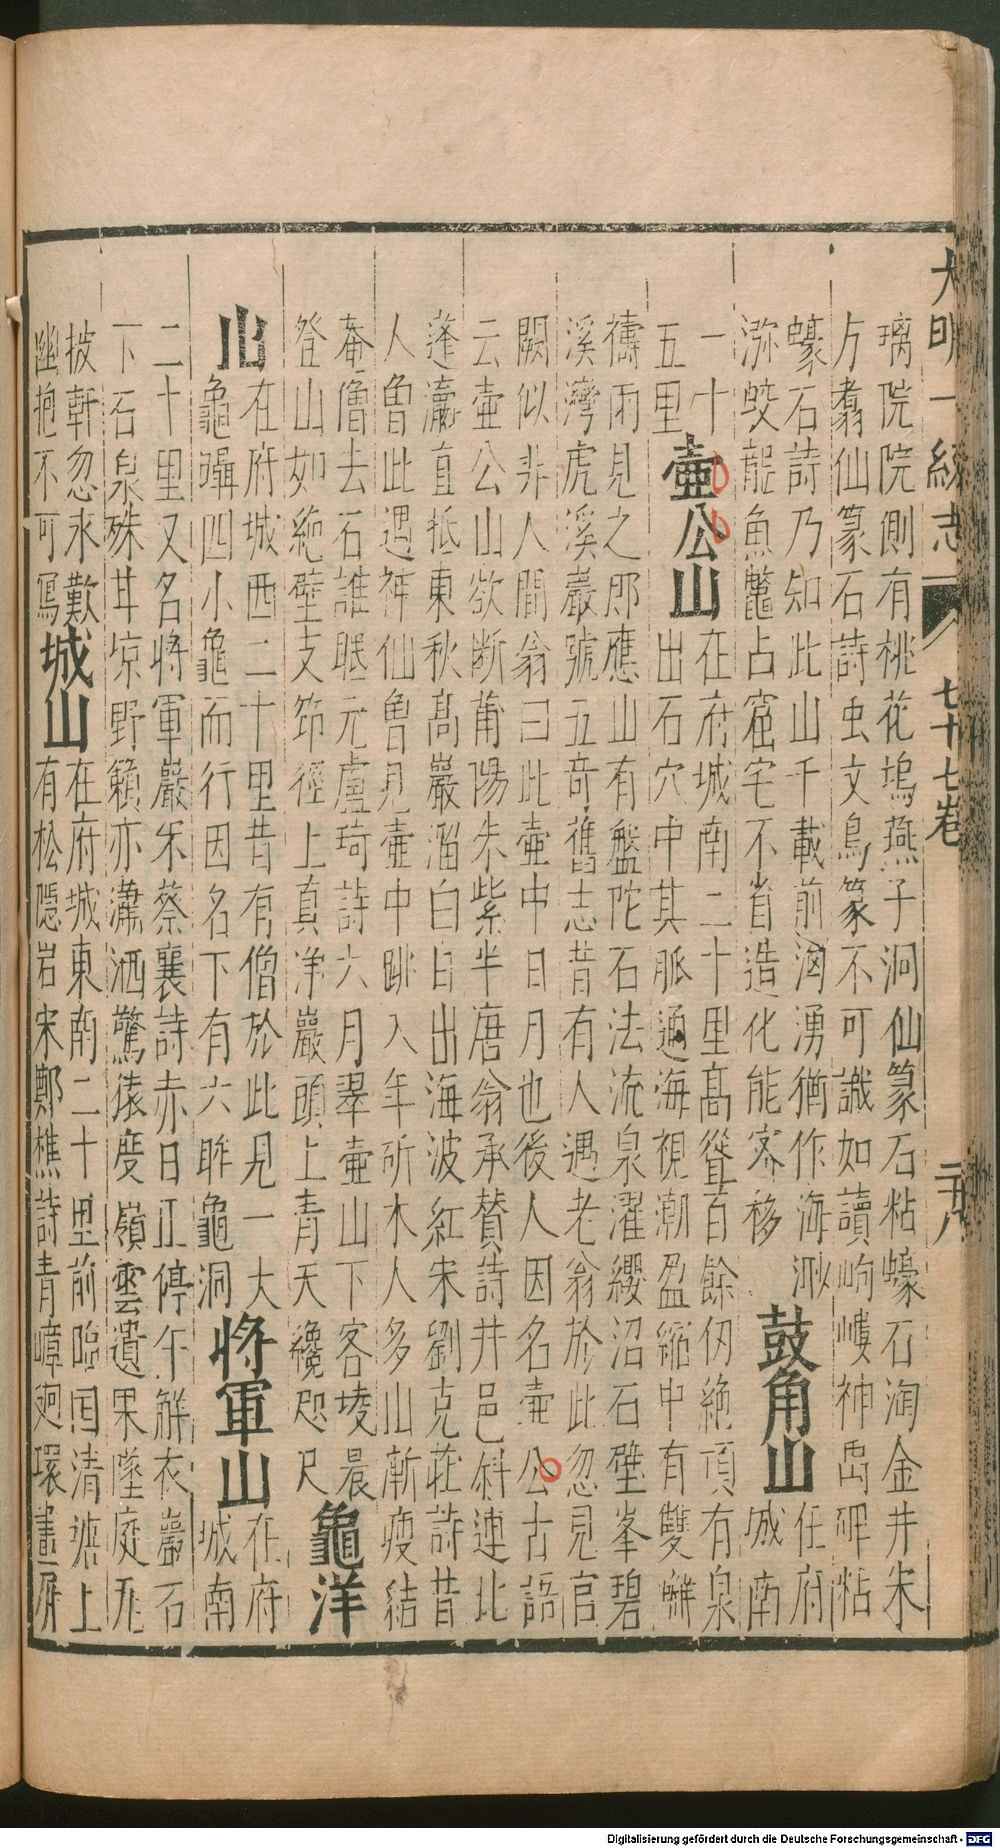 大明一統志 七十七卷 二十八
璃院院側有桃花塢燕子洞仙篆石粘蠔石淘金井朱
方翥仙篆石詩虫文鳥篆不可識如讀岣嶁神禹碑粘
蠔石詩乃知此山千載前洶湧猶作海
瀰蛟龍魚鼈占窟宅不省造化能客移
鼓角山
在府
城南
一十
五里
壺公山
在府城南二十里高聳百餘仞絶頂有泉
出石穴中其脈通海視潮盈縮中有雙蠏
禱雨見之即應山有盤陀石法流泉濯纓沼石壁峯碧
溪灣虎溪巖號五奇舊志昔有人遇老翁於此忽見官
闕似非人間翁曰此壺中日月也後人因名壺公古語
云壺公山欲斷莆陽朱紫半唐翁承贊詩井邑斜連北
蓬瀛直抵東秋高巖溜白日出海波紅宋劉克莊詩昔
人魯此遇神仙魯見壺中跳入年所木人多山漸瘦結
菴僧去石誰眠元盧琦詩六月翠壺山下客凌晨
登山如絶壁支笻徑上真净巖頭上青天纔咫尺
龜洋
山
在府城西二十里昔有僧於此見一大
龜躡四小龜而行因名下有六眸龜洞
將軍山
在府
城南
二十里又名將軍巖宋蔡襄詩赤日正停午解衣巖石
下石泉殊甘凉野籟亦瀟洒驚猿度嶺雲遺果墜庭瓦
披軒忽永歎
幽抱不可寫
城山
在府城東南二十里前臨国清塘上
有松隱岩宋鄭樵詩青嶂廻環畫屏
Digitalisierung gefördert durch die Deutsche Forschungsgemeinschaft - DFG